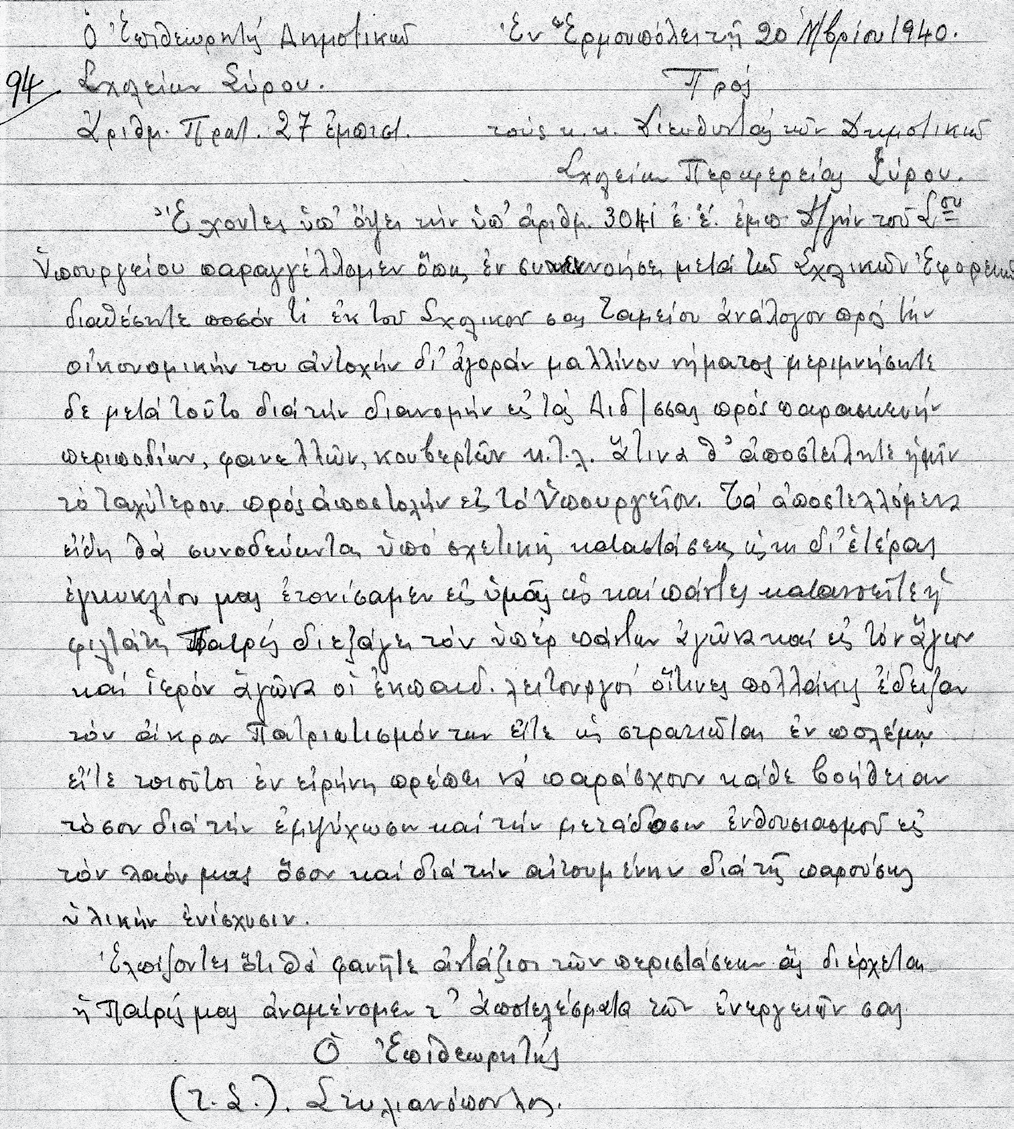 Ὁ Ἐπιθεωρητὴς Δημοτικῶν Ἐν Ἑρμουπόλει τῇ 20 Ν/βρίου 1940.
94 Σχολείων Σύρου. Πρὸς
Ἀριθμ. Πρωτ. 27 ἐμπιστ. τοὺς κ.κ. Διευθυντὰς τῶν Δημοτικῶν
Σχολείων Περιφερείας Σύρου.
Ἔχοντες ὑπ' ὄψει τὴν ὑπ' ἀριθμ. 3041 ἐ.ἔ. ἐμπ. Δ/γὴν τοῦ Σου
Ὑπουργείου παραγγέλλομεν ὅπως ἐν συνεννοήσει μετὰ τῶν Σχολικῶν Ἐφορειῶν
διαθέσητε ποσόν τι ἐκ τοῦ Σχολικοῦ σας Ταμείου ἀνάλογον πρὸς τὴν
οἰκονομικήν του ἀντοχὴν δι' ἀγορὰν μαλλίνου νήματος μεριμνήσητε
δὲ μετὰ τοῦτο διὰ τὴν διανομὴν εἰς τὰς Διδ/σσας πρὸς παρασκευὴν
περιποδίων, φανελλῶν, κουβερτῶν κ.τ.λ. ἅτινα θ' ἀποστείλητε ἡμῖν
τὸ ταχύτερον πρὸς ἀποστολὴν εἰς τὸ Ὑπουργεῖον. Τὰ ἀποστελλόμενα
εἴδη θὰ συνοδεύωνται ὑπὸ σχετικῆς καταστάσεως ὡς κι δι' ἑτέρας
ἐγκυκλίου μας ἐτονίσαμεν εἰς ὑμᾶς ὡς καὶ πάντες κατανοεῖτε ἡ
φιλτάτη Πατρὶς διεξάγει τὸν ὑπὲρ πάντων ἀγῶνα καὶ εἰς τὸν ἅγιον
καὶ ἱερὸν ἀγῶνα οἱ ἐκπαιδ. λειτουργοὶ οἵτινες πολλάκις ἔδειξαν
τὸν ἄκρον Πατριωτισμόν των εἴτε ὡς στρατιῶται ἐν πολέμῳ
εἴτε τοιοῦτοι ἐν εἰρήνῃ πρέπει νὰ παράσχουν κάθε βοήθειαν
τόσον διὰ τὴν ἐμψύχωσιν καὶ τὴν μετάδοσιν ἐνθουσιασμοῦ εἰς
τὸν λαόν μας ὅσον καὶ διὰ τὴν αἰτουμένην διὰ τῆς παρούσης
ὑλικὴν ἐνίσχυσιν.
Ἐλπίζοντες ὅτι θὰ φανῆτε ἀντάξιοι τῶν περιστάσεων ἃς διέρχεται
ἡ Πατρίς μας ἀναμένομεν τ' ἀποτελέσματα τῶν ἐνεργειῶν σας
Ὁ Ἐπιθεωρητής
(Τ.Σ.). Στυλιανόπουλος.